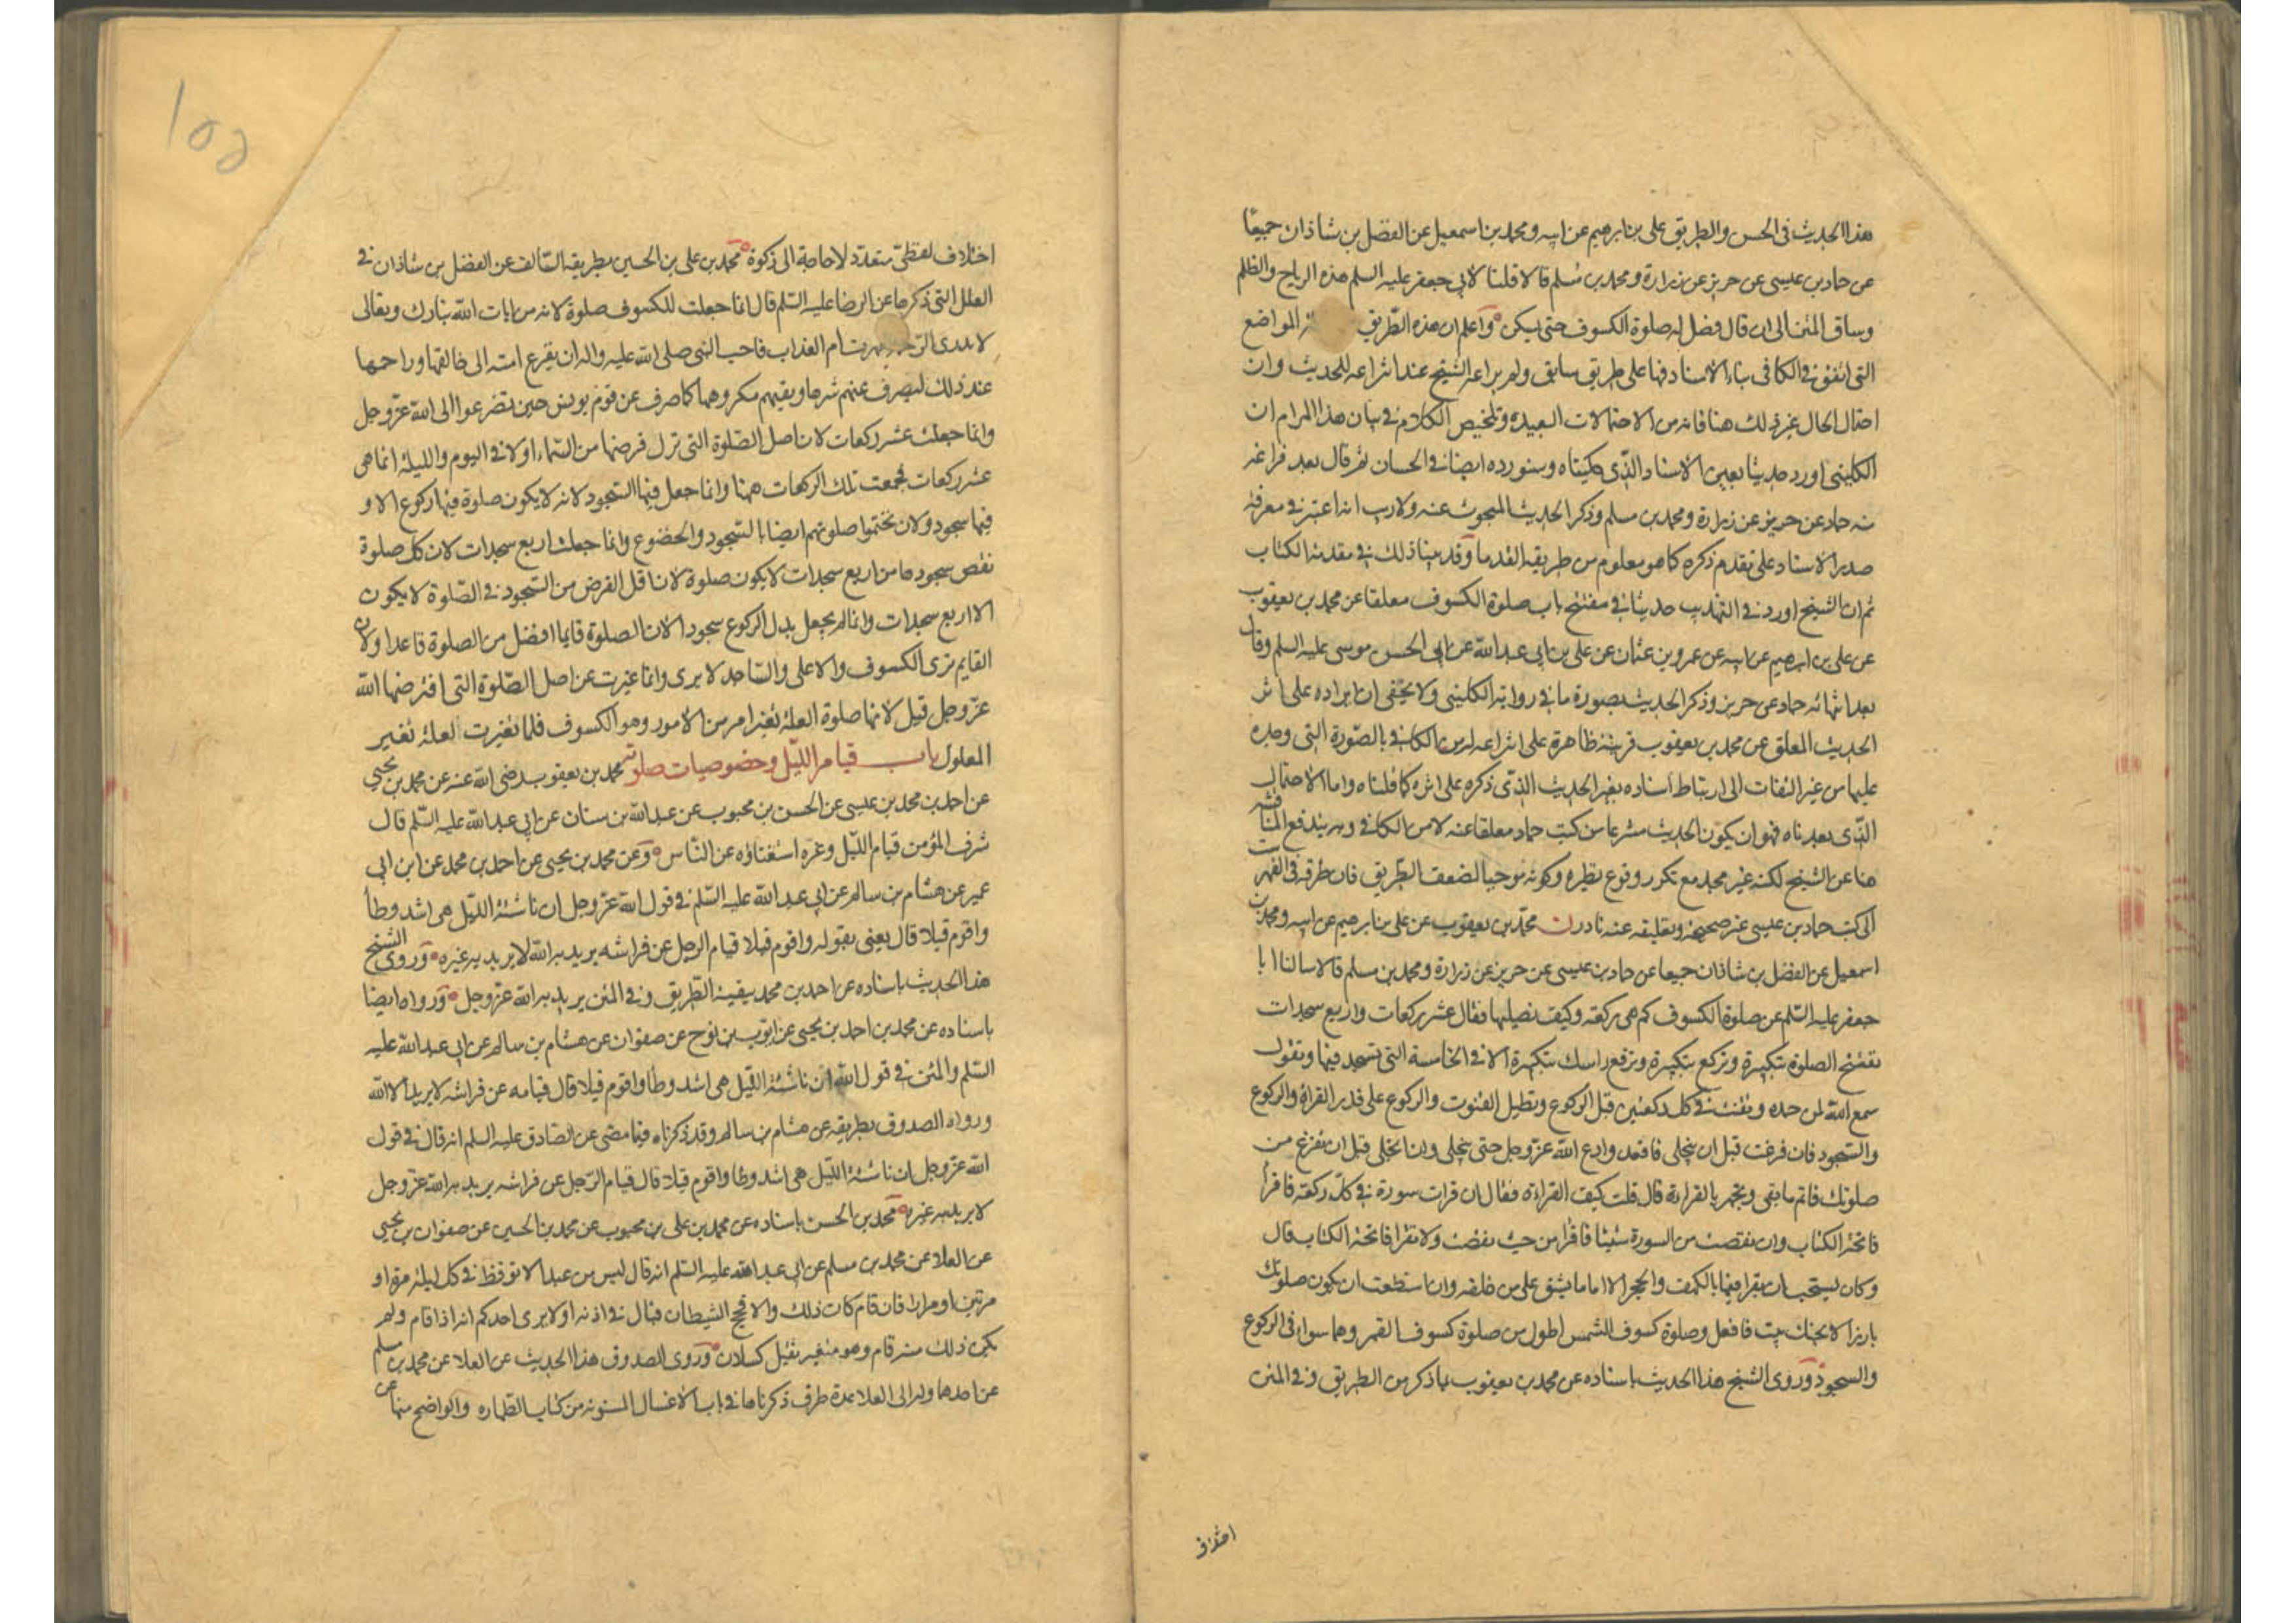 هذا الحديث في الحسن والطريق علي بن ابرهيم عن ابيه ومحمد بن اسمعيل عن الفضل بن شاذان جميعًا
عن حماد بن عيسى عن حريز عن زرارة ومحمد بن مسلم قالا قلنا لابي جعفر عليه السلم هذه الرياح والظلم
وساق المتن الى ان قال فصل له صلوة الكسوف حتى يسكن واعلم ان هذه الطّريق المواضع
التي اتفق في الكافي بناء الاسناد فيها على طريق سابق ولم يراعه الشيخ عند انتزاعه للحديث وان
احتمال الحال غير ذلك هنا فانه من الاحتمالات البعيدة وتلخيص الكلام في بيان هذا المرام ان
الكليني اورد حديثا بعين الاسناد الذّي حكيناه وسنورده ايضا في الحسان ثم قال بعد فراغه
منه حماد عن حريز عن زرارة ومحمد بن مسلم وذكر الحديث المبحوث عنه ولا ريب انه اعتبر في معرفة
صدر الاسناد على تقدم ذكره كما هو معلوم من طريقة القدما وقد بينا ذلك في مقدمة الكتاب
ثم ان الشيخ اورد في التهذيب حديثا في مفتتح باب صلوة الكسوف معلقا عن محمد بن يعقوب
عن علي بن ابرهيم عن ابيه عن عمرو بن عثمان عن علي بن ابي عبد الله عن ابي الحسن موسى عليه السلم وقال
بعد انهائه حماد عن حريز وذكر الحديث بصورة ما في رواية الكليني ولا يخفى ان ايراده على اثر
الحديث المعلق عن محمد بن يعقوب قرينة ظاهرة على انتزاعه له من الكافي بالصّورة التي وجده
عليها من غير التفات الى ارتباط اسناده بغير الحديث الذّي ذكره على اثره كما قلناه واما الاحتمال
الذّي بعدناه فهو ان يكون الحديث منتزعا من كتب حماد معلقا عنه لا من الكافي وبه يندفع المناقشة
هنا عن الشيخ لكنه غير مجد مع تكرر وقوع نظيره وكونه موجبا لضعف الطّريق فان طرقه في الفهرست
الى كتب حماد بن عيسى غير صحيحة وتعليقه عنه نادر ن محمّد بن يعقوب عن علي بن ابرهيم عن ابيه ومحمد بن
اسمعيل عن الفضل بن شاذان جميعا عن حماد بن عيسى عن حريز عن زرارة ومحمد بن مسلم قالا سالنا ابا
جعفر عليه السّلم عن صلوة الكسوف كم هي ركعة وكيف نصليها فقال عشر ركعات واربع سجدات
تفتتح الصلوة بتكبيرة وتركع بتكبيرة وترفع راسك بتكبيرة الا في الخامسة التي تسجد فيها وتقول
سمع الله لمن حمده وتقنت في كل ركعتين قبل الركوع وتطيل القنوت والركوع على قدر القراة والركوع
والسّجود فان فرغت قبل ان ينجلي فاقعد وادع الله عزّ وجل حتى ينجلي وان انجلى قبل ان تفرغ من
صلوتك فاتم ما بقى وتجهر بالقراءة قال قلت كيف القراءة فقال ان قرات سورة في كلّ ركعة فاقرأ
فاتحة الكتاب وان نقصت من السورة شيئا فاقرأ من حيث نقصت ولا تقرا فاتحة الكتاب قال
وكان يستحب ان يقرا فيها بالكهف والحجر الا ان يكون اماما يشق على من خلفه وان استطعت ان يكون صلوتك
بارزا لا يجنك بيت فافعل وصلوة كسوف الشمس اطول من صلوة كسوف القمر وهما سواء في الركوع
والسجود وروى الشيخ هذا الحديث باسناده عن محمد بن يعقوب بما ذكر من الطريق وفي المتن
اختلاف
اختلاف لفظي متعدد لا حاجة الى ذكره محمد بن علي بن الحسين بطريقه السّالف عن الفضل بن شاذان في
العلل التي ذكرها عن الرضا عليه السّلم قال انما جعلت للكسوف صلوة لانه من ايات الله تبارك وتعالى
لا يدرى الرّحمة ظهرت ام العذاب فاحب النبي صلى الله عليه واله ان يفزع امته الى خالقها وراحمها
عند ذلك ليصرف عنهم شرها ويقيهم مكروهها كما صرف عن قوم يونس حين تضرعوا الى الله عزّ وجل
وانما جعلت عشر ركعات لان اصل الصّلوة التي نزل فرضها من السّماء اولا في اليوم والليلة انما هي
عشر ركعات فجمعت تلك الركعات ههنا وانما جعل فيها السّجود لانه لا يكون صلوة فيها ركوع الا و
فيها سجود ولان يختموا صلوتهم ايضا بالسّجود والخضوع وانما جعلت اربع سجدات لان كل صلوة
نقص سجودها من اربع سجدات لا يكون صلوة لان اقل الفرض من السّجود في الصّلوة لا يكون
الا اربع سجدات وانما لم يجعل بدل الركوع سجودا لان الصلوة قايما افضل من الصلوة قاعدا ولان
القايم يرى الكسوف والاعلى والسّاجد لا يرى وانما غيرت عن اصل الصّلوة التي افترضها الله
عزّ وجل قيل لانها صلوة لعلة تغير امر من الامور وهو الكسوف فلما تغيرت العلة تغير
المعلول باب قيام اللّيل وخصوصيات صلوته محمد بن يعقوب رضي الله عنه عن محمد بن يحيى
عن احمد بن محمد بن عيسى عن الحسن بن محبوب عن عبد الله بن سنان عن ابي عبد الله عليه السّلم قال
شرف المؤمن قيام اللّيل وعزه استغناؤه عن النّاس وعن محمد بن يحيى عن احمد بن محمد عن ابن ابي
عمير عن هشام بن سالم عن ابي عبد الله عليه السّلم في قول الله عزّ وجل ان ناشئة اللّيل هي اشد وطأ
واقوم قيلا قال يعني بقوله واقوم قيلا قيام الرجل عن فراشه يريد به الله لا يريد به غيره وروى الشيخ
هذا الحديث باسناده عن احمد بن محمد ببقية الطّريق وفي المتن يريد به الله عزّ وجل ورواه ايضا
باسناده عن محمد بن احمد بن يحيى عن ايّوب بن نوح عن صفوان عن هشام بن سالم عن ابي عبد الله عليه
السّلم والمتن في قول الله ان ناشئة اللّيل هي اشد وطأ واقوم قيلا قال قيامه عن فراشه لا يريد الا الله
ورواه الصدوق بطريقه عن هشام بن سالم وقد ذكرناه فيما مضى عن الصّادق عليه السلم انه قال في قول
الله عزّ وجل ان ناشئة اللّيل هي اشد وطا واقوم قيلا قال قيام الرّجل عن فراشه يريد به الله عزّ وجل
لا يريد به غيره محمد بن الحسن باسناده عن محمد بن علي بن محبوب عن محمد بن الحسين عن صفوان بن يحيى
عن العلاء عن محمد بن مسلم عن ابي عبد الله عليه السّلم انه قال ليس من عبد الا يوقظ في كل ليلة مرة او
مرتين او مرارا فان قام كان ذلك والا فحج الشيطان فبال في اذنه او لا يرى احدكم انه اذا قام ولم
يكن ذلك منه قام وهو متغير ثقيل كسلان وروى الصدوق هذا الحديث عن العلا عن محمد بن مسلم
عن احدهما وله الى العلا عدة طرق ذكرناها في باب الاغسال المسنونة من كتاب الطّهارة والواضح منها عن